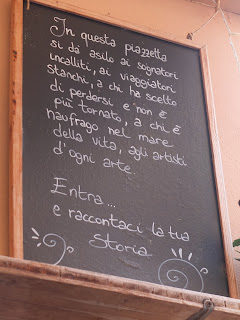 In questa piazzetta
si dà asilo ai sognatori
incalliti, ai viaggiatori
stanchi, a chi ha scelto
di perdersi e non è
più tornato, a chi è
naufrago nel mare
della vita, agli artisti
d'ogni arte.
Entra...
e raccontaci la tua
Storia